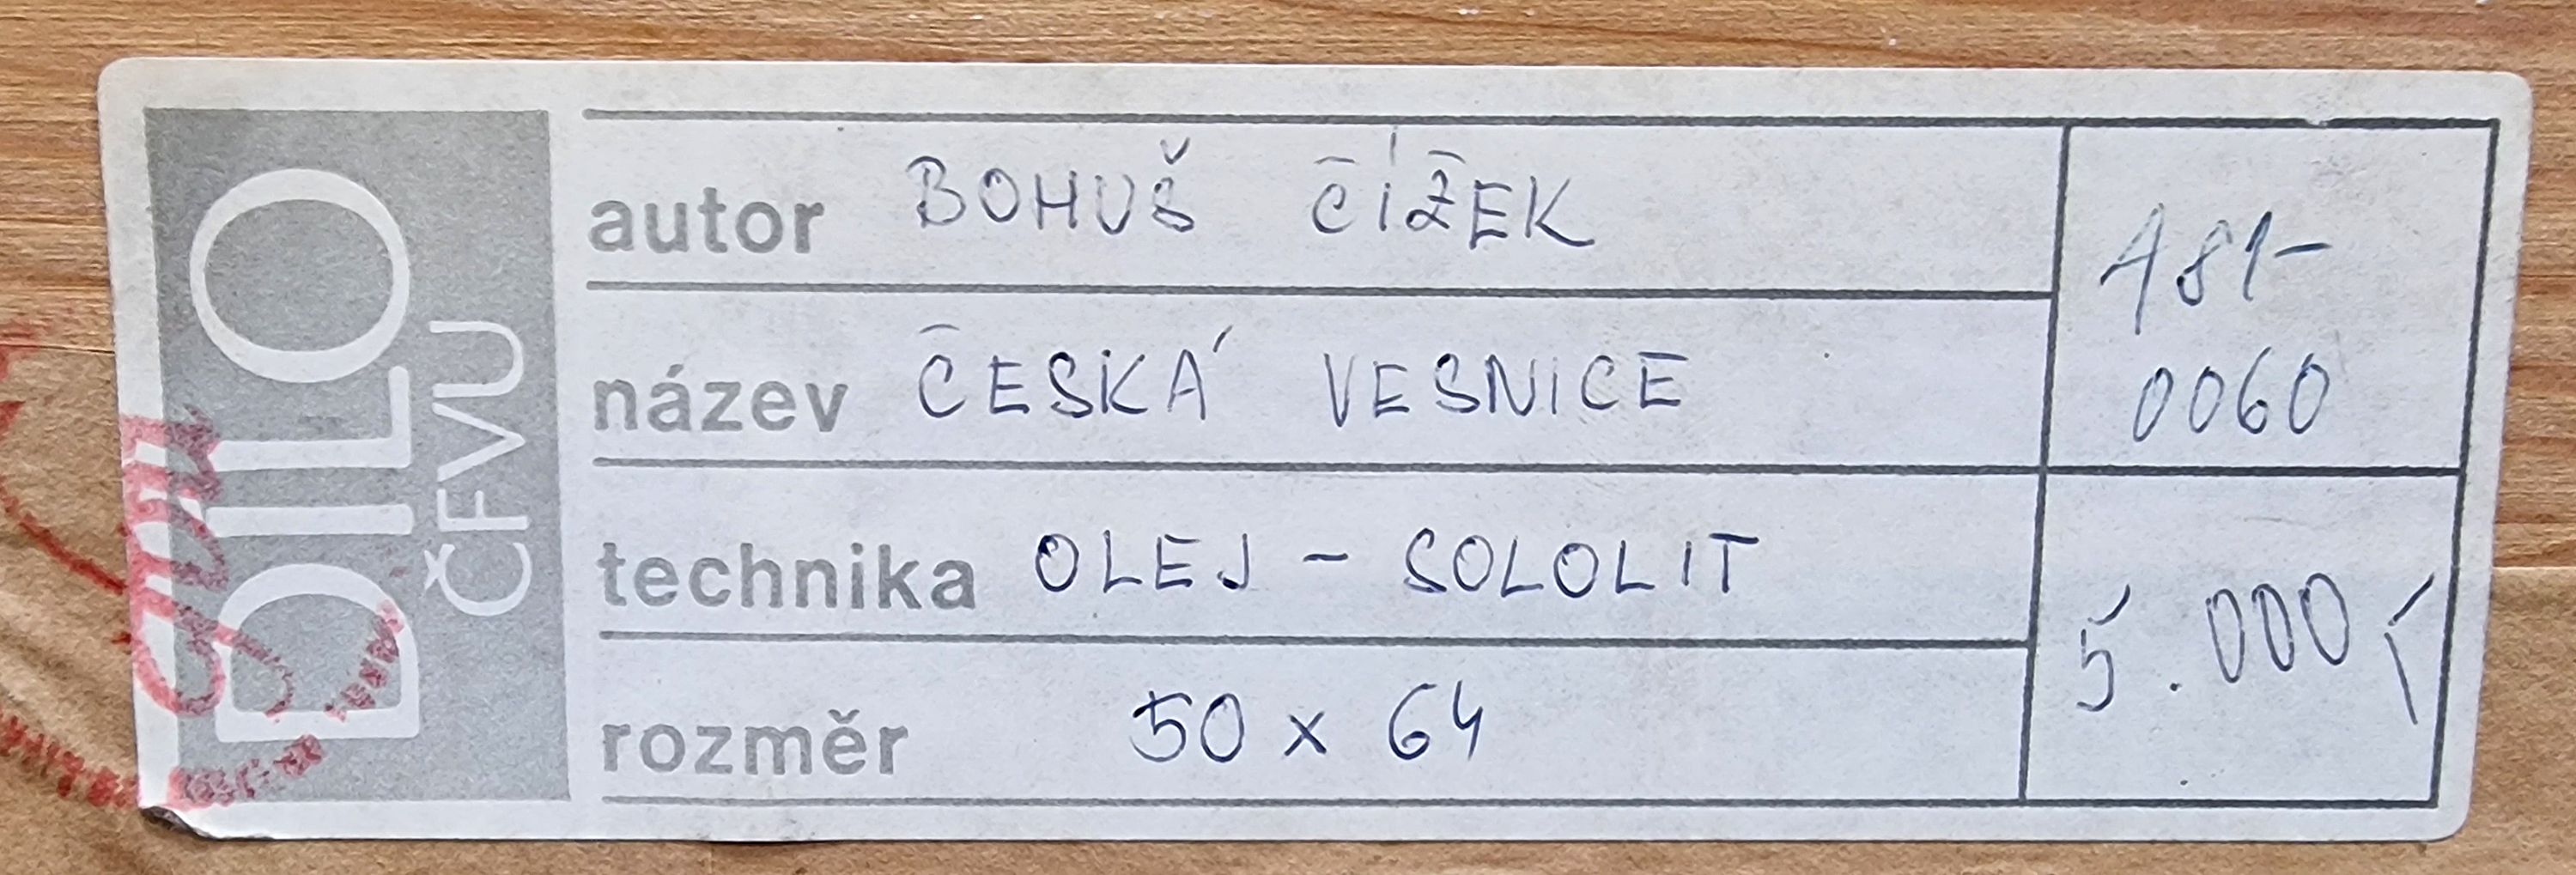 DÍLO
ČFVU
autor BOHUŠ ČÍŽEK
název ČESKÁ VESNICE
technika OLEJ - SOLOLIT
rozměr 50 x 64
481-
0060
5.000